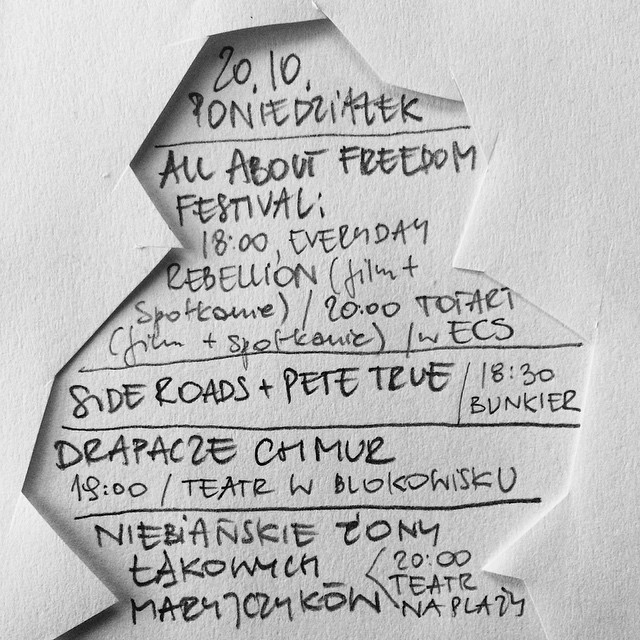 20.10.
PONIEDZIAŁEK
ALL ABOUT FREEDOM
FESTIVAL:
18:00 EVERYDAY
REBELLION (film +
spotkanie) / 20:00 TOTART
(film + spotkanie) / w ECS
SIDE ROADS + PETE TRUE / 18:30
BUNKIER
DRAPACZE CHMUR
19:00 / TEATR W BLOKOWISKU
NIEBIAŃSKIE ŻONY
ŁĄKOWYCH
MARYJCZYKÓW
20:00
TEATR
NA PLAŻY